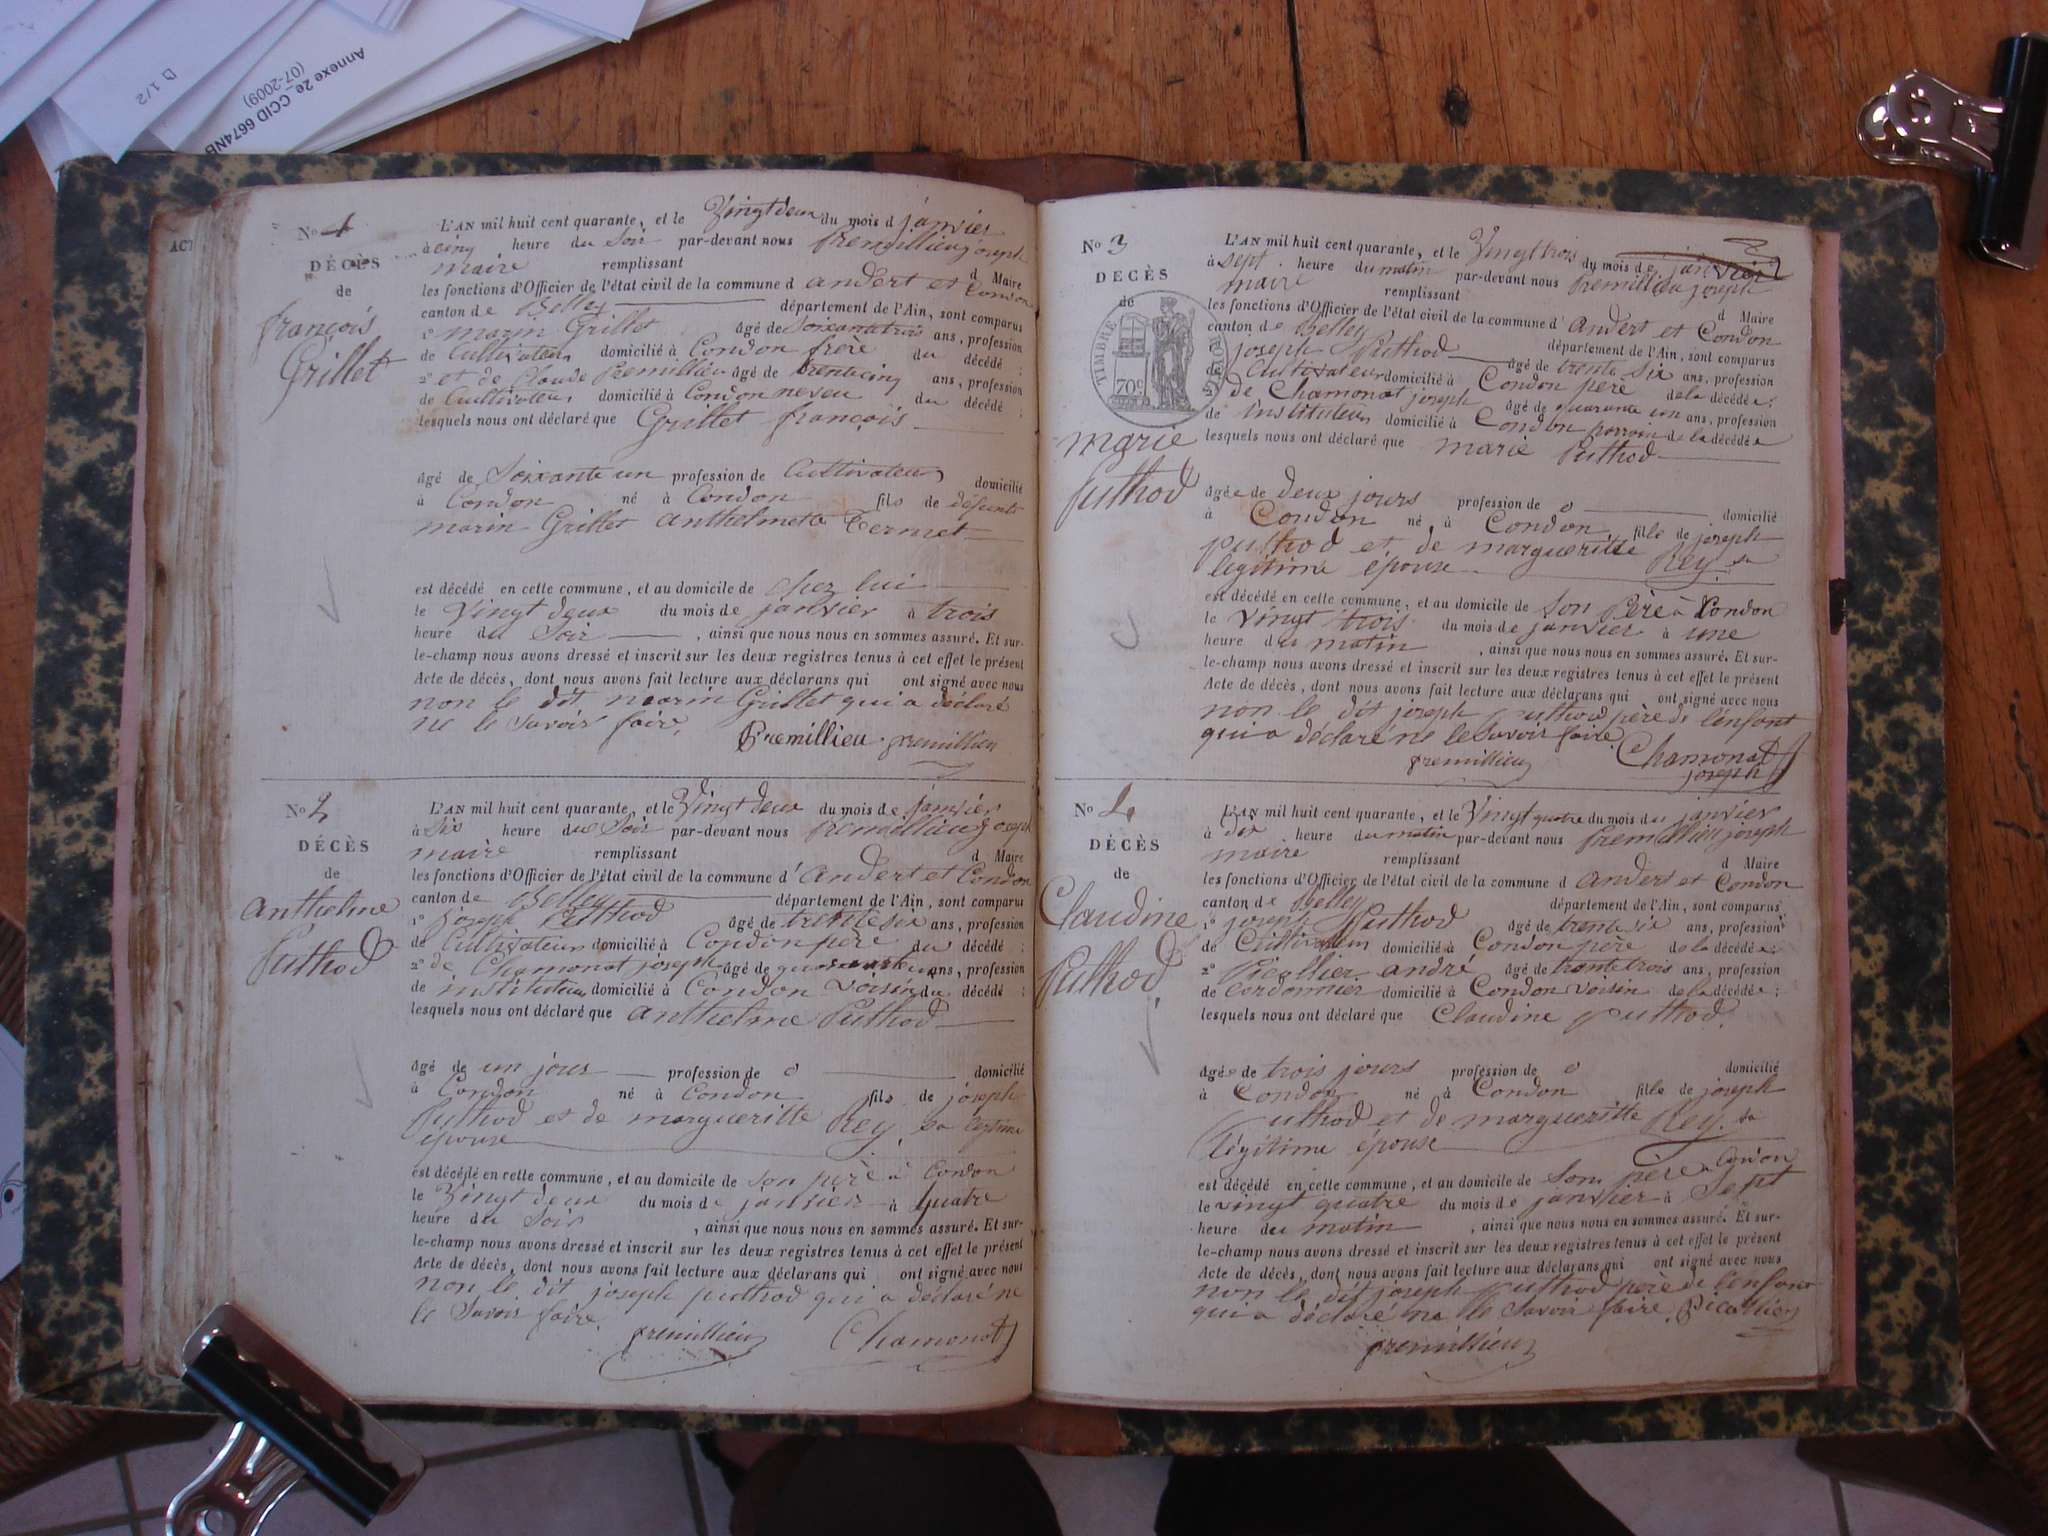 Annexe 2e_CCID 6674NB
(07-2009)
D 1/2
ACT
No 1
DÉCÈS
de
françois
Grillet
L'AN mil huit cent quarante, et le Vingt deux du mois d janvier
à cinq heure du Soir par-devant nous Premillieu joseph
maire remplissant d Maire
les fonctions d'Officier de l'état civil de la commune d andert et Condon
canton de Belley département de l'Ain, sont comparus
1° marin Grillet âgé de Soixante trois ans, profession
de Cultivateur domicilié à Condon frère du décédé ;
2° et de Claude Premillieu âgé de trente cinq ans, profession
de Cultivateur domicilié à Condon neveu du décédé ;
lesquels nous ont déclaré que Grillet françois
âgé de Soixante un profession de Cultivateur domicilié
à Condon né à Condon fils de défunts
marin Grillet anthelmette Termet
est décédé en cette commune, et au domicile de chez lui
le Vingt deux du mois de janvier à trois
heure du Soir , ainsi que nous nous en sommes assuré. Et sur-
le-champ nous avons dressé et inscrit sur les deux registres tenus à cet effet le présent
Acte de décès, dont nous avons fait lecture aux déclarans qui ont signé avec nous
non le dit marin Grillet qui a déclaré
ne le Savoir faire,
Premillieu premillieu
No 2
DÉCÈS
de
anthelme
Puthod
L'AN mil huit cent quarante, et le Vingt deux du mois de janvier
à Six heure du Soir par-devant nous Premillieu joseph
maire remplissant d Maire
les fonctions d'Officier de l'état civil de la commune d' andert et Condon
canton de Belley département de l'Ain, sont comparus
1° joseph Puthod âgé de trente six ans, profession
de Cultivateur domicilié à Condon père du décédé ;
2° de Chamonat joseph âgé de quarante un ans, profession
de instituteur domicilié à Condon voisin du décédé ;
lesquels nous ont déclaré que anthelme Puthod
âgé de un jour profession de o domicilié
à Condon né à Condon fils de joseph
Puthod et de margueritte Rey, sa légitime
épouse
est décédé en cette commune, et au domicile de son père à Condon
le Vingt deux du mois de janvier à quatre
heure du Soir , ainsi que nous nous en sommes assuré. Et sur-
le-champ nous avons dressé et inscrit sur les deux registres tenus à cet effet le présent
Acte de décès, dont nous avons fait lecture aux déclarans qui ont signé avec nous
non le dit joseph puthod qui a déclaré ne
le Savoir faire.
premillieu Chamonat
No 3
DECÈS
de
TIMBRE
70c
marie
Puthod
L'AN mil huit cent quarante, et le Vingt trois du mois de janvier
à sept heure du matin par-devant nous Premillieu joseph
maire remplissant d Maire
les fonctions d'Officier de l'état civil de la commune d' andert et Condon
canton de Belley département de l'Ain, sont comparus
joseph Puthod âgé de trente six ans, profession
Cultivateur domicilié à Condon père de la décédée ;
2° de Chamonat joseph âgé de quarante un ans, profession
de instituteur domicilié à Condon parrain de la décédée
lesquels nous ont déclaré que marie Puthod
âgée de deux jours profession de o domicilié
à Condon né à Condon fille de joseph
puthod et de margueritte Rey, sa
légitime épouse
est décédée en cette commune, et au domicile de son Père à Condon
le Vingt trois du mois de janvier à une
heure du matin , ainsi que nous nous en sommes assuré. Et sur-
le-champ nous avons dressé et inscrit sur les deux registres tenus à cet effet le présent
Acte de décès, dont nous avons fait lecture aux déclarans qui ont signé avec nous
non le dit joseph puthod père de l'enfant
qui a déclaré ne le Savoir faire
premillieu Chamonat
joseph
No 4
DÉCÈS
de
Claudine
Puthod
L'AN mil huit cent quarante, et le Vingt quatre du mois du janvier
à dix heure du matin par-devant nous Premillieu joseph
maire remplissant d Maire
les fonctions d'Officier de l'état civil de la commune d andert et Condon
canton de Belley département de l'Ain, sont comparus
1° joseph Puthod âgé de trente six ans, profession
de Cultivateur domicilié à Condon père de la décédée ;
2° andré âgé de trente trois ans, profession
de Cordonnier domicilié à Condon voisin de la décédée ;
lesquels nous ont déclaré que Claudine puthod.
âgée de trois jours profession de o domicilié
à Condon né à Condon fille de joseph
Puthod et de margueritte Rey. sa
légitime épouse
est décédée en cette commune, et au domicile de Son père à Condon
le vingt quatre du mois de janvier à Sept
heure du matin , ainsi que nous nous en sommes assuré. Et sur-
le-champ nous avons dressé et inscrit sur les deux registres tenus à cet effet le présent
Acte de décès, dont nous avons fait lecture aux déclarans qui ont signé avec nous
non le dit joseph puthod père de l'enfant
qui a déclaré ne le Savoir faire.
premillieu